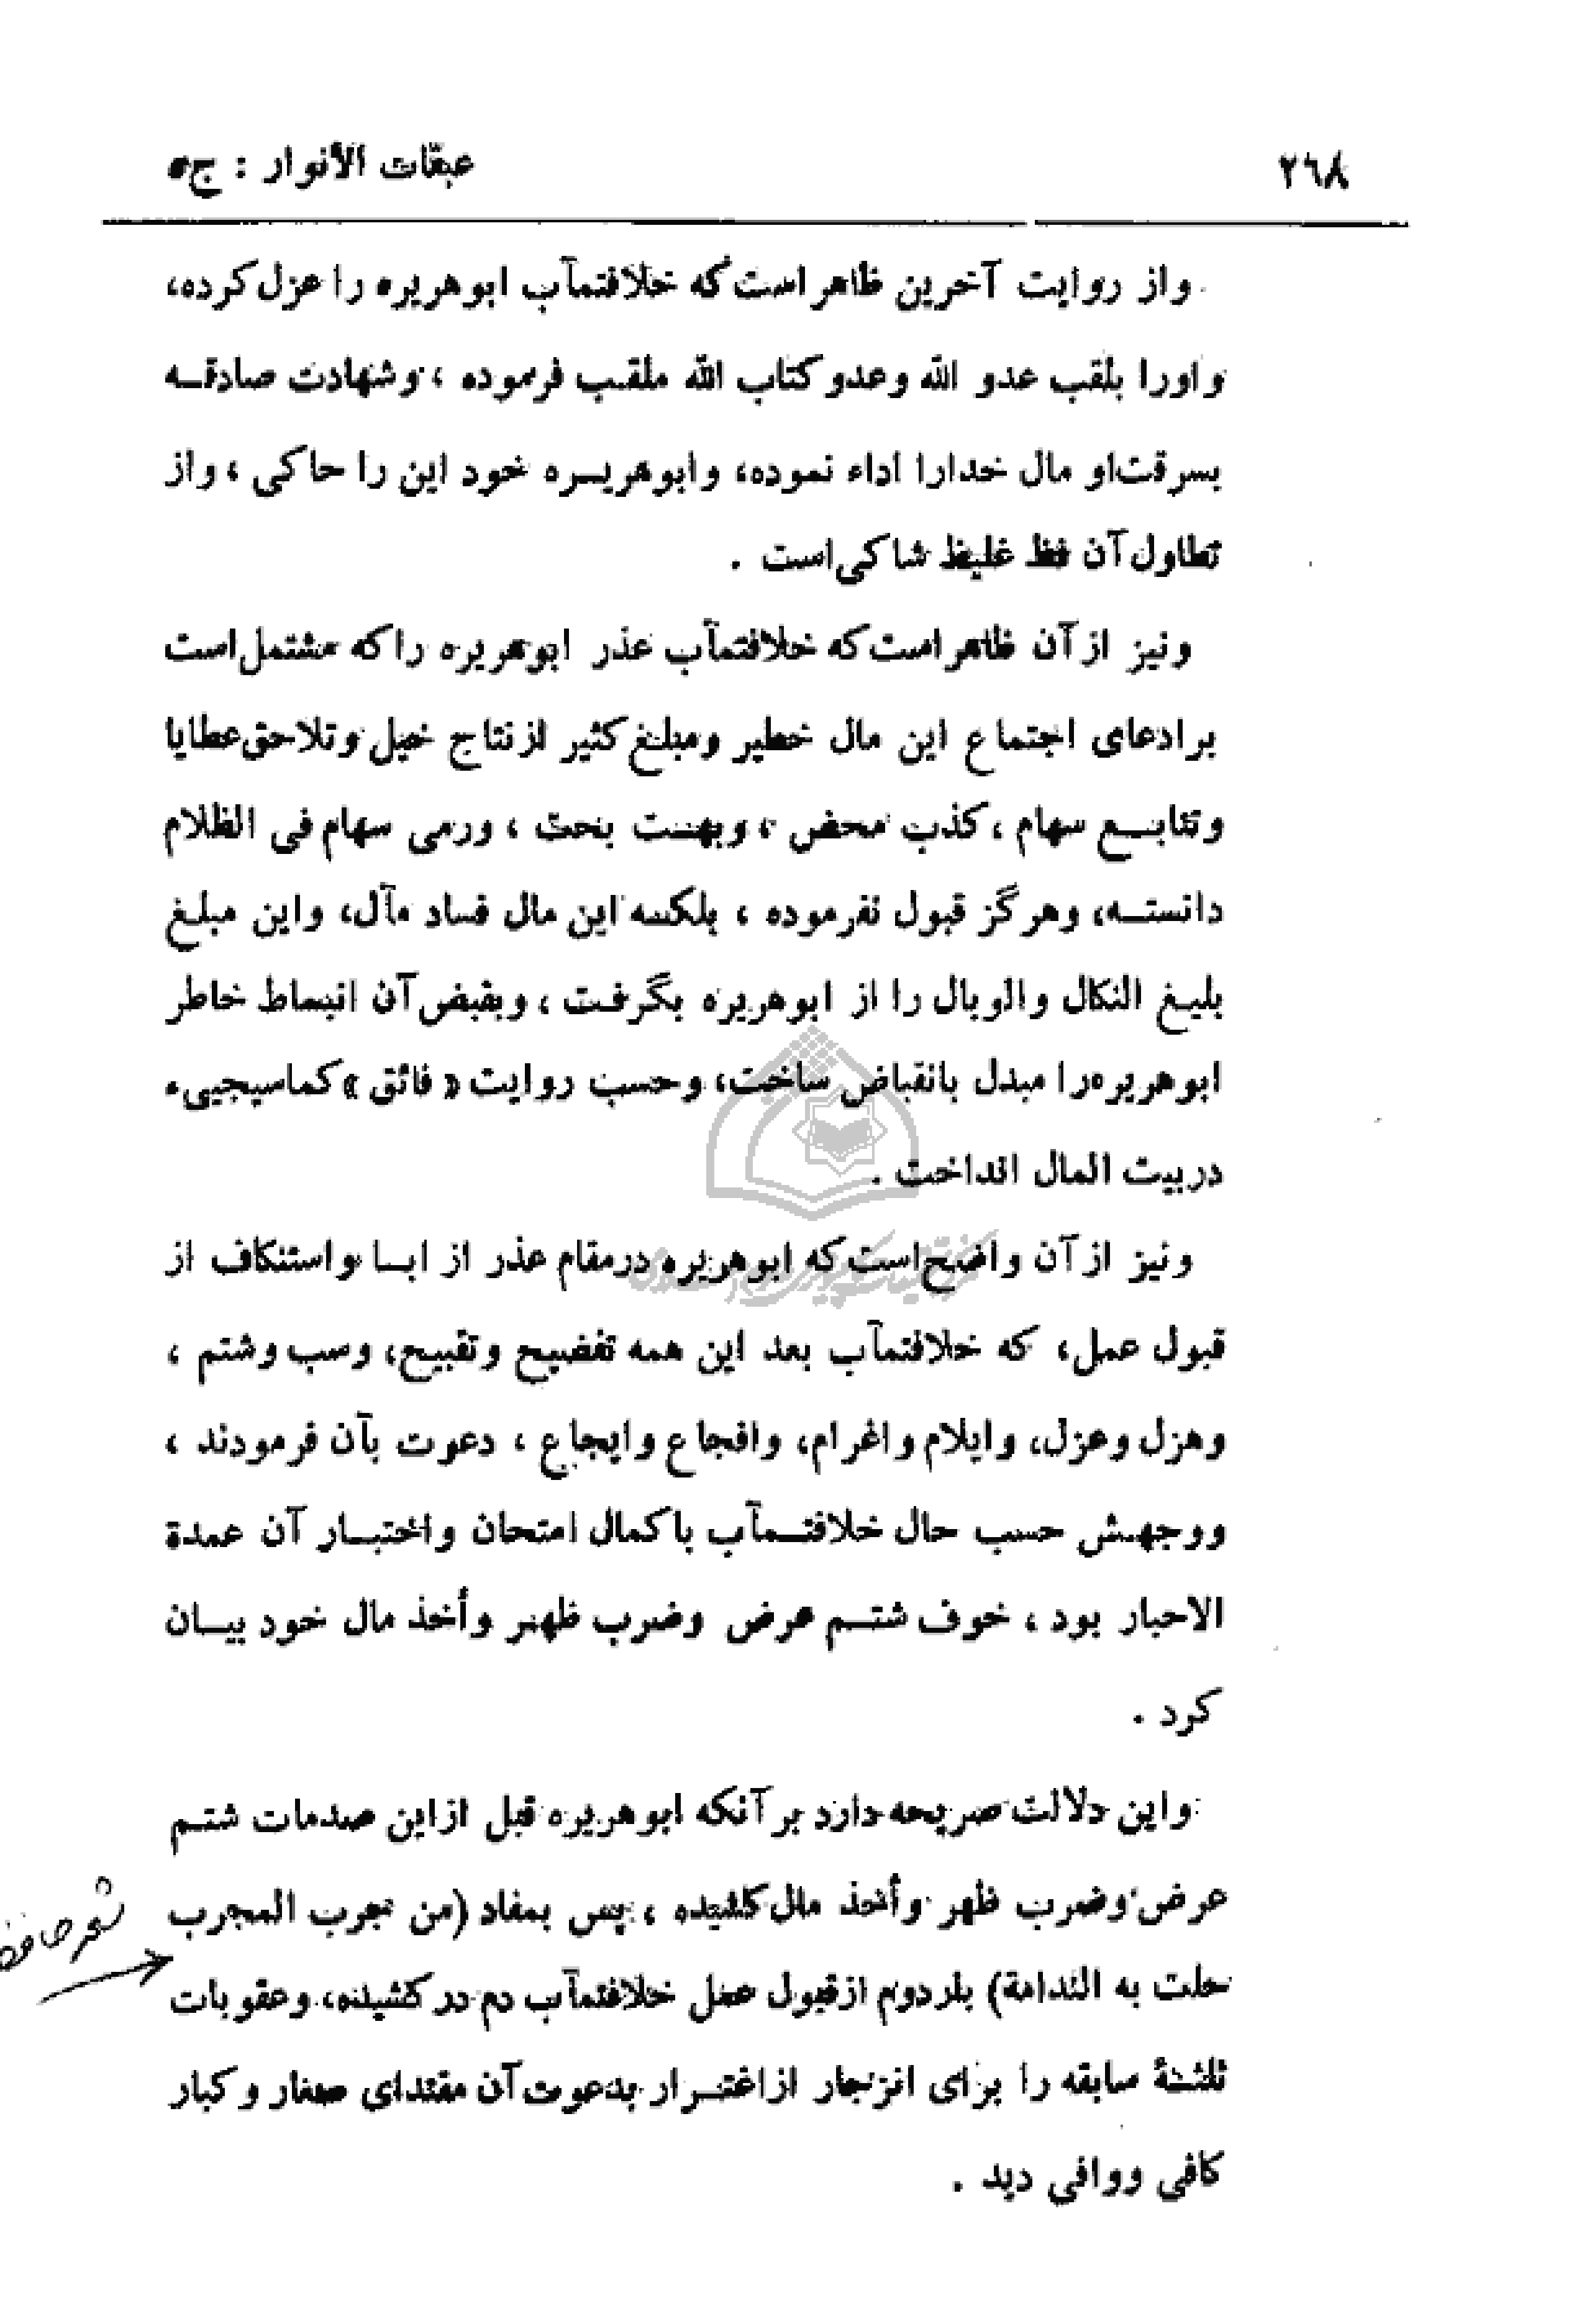 ۲٦٨ عبقات الأنوار : ج٥
واز روایت آخرین ظاهر است که خلافتمآب ابوهریره را عزل کرده،
واورا بلقب عدو الله وعدو کتاب الله ملقب فرموده ، وشهادت صادقه
بسرقت‌او مال خدارا اداء نموده، وابوهریره خود این را حاکی ، واز
تطاول آن فظ غلیظ شاکی است .
ونیز از آن ظاهر است که خلافتمآب عذر ابوهریره را که مشتمل است
برادعای اجتماع این مال خطیر ومبلغ کثیر از نتاج خیل وتلاحق عطایا
وتتابع سهام ، کذب محض ، وبهت بحت ، ورمی سهام فی الظلام
دانسته، وهرگز قبول نفرموده ، بلکه این مال فساد مآل، واین مبلغ
بلیغ النکال والوبال را از ابوهریره بگرفت ، وبقبض آن انبساط خاطر
ابوهریره‌را مبدل بانقباض ساخت، وحسب روایت « فائق » کماسیجییء
دربیت المال انداخت .
ونیز از آن واضح است که ابوهریره درمقام عذر از ابا واستنکاف از
قبول عمل، که خلافتمآب بعد این همه تفضیح وتقبیح، وسب وشتم ،
وهزل وعزل، وایلام واغرام، وافجاع وایجاع ، دعوت بآن فرمودند ،
ووجهش حسب حال خلافتمآب باکمال امتحان واختبار آن عمدة
الاحبار بود ، خوف شتم عرض وضرب ظهر وأخذ مال خود بیان
کرد .
واین دلالت صریحه دارد بر آنکه ابوهریره قبل ازاین صدمات شتم
عرض وضرب ظهر وأخذ مال کشیده ، پس بمفاد (من جرب المجرب
حلت به الندامة) بار دوم از قبول عمل خلافتمآب دم در کشیده، وعقوبات
ثلثۀ سابقه را برای انزجار ازاغترار بدعوت آن مقتدای صغار وکبار
کافی ووافی دید .
شعر حافظ